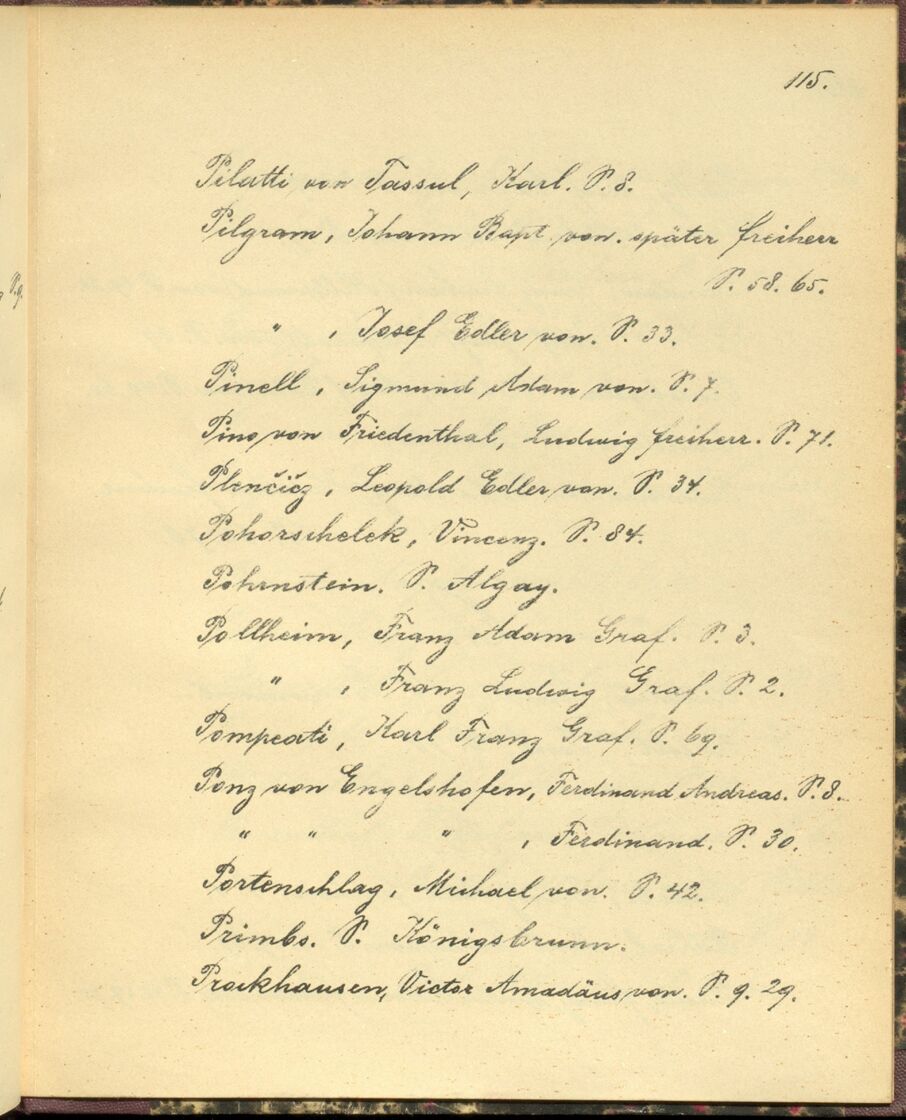 115.
Pilatti von Tassul, Karl. S. 8.
Pilgram, Johann Bapt. von. später Freiherr
S. 58. 65.
" , Josef Edler von. S. 33.
Pinell, Sigmund Adam von. S. 7.
Pino von Friedenthal, Ludwig Freiherr. S. 71.
Plenčičz, Leopold Edler von. S. 34.
Pohorschelek, Vincenz. S. 84.
Pohrnstein. S. Algay.
Pollheim, Franz Adam Graf. S. 3.
" , Franz Ludwig Graf. S. 2.
Pompeati, Karl Franz Graf. S. 69.
Ponz von Engelshofen, Ferdinand Andreas. S. 8.
" " " , Ferdinand. S. 30.
Portenschlag, Michael von. S. 42.
Primbs. S. Königsbrunn.
Prockhausen, Victor Amadäus von. S. 9. 29.
S. 9.